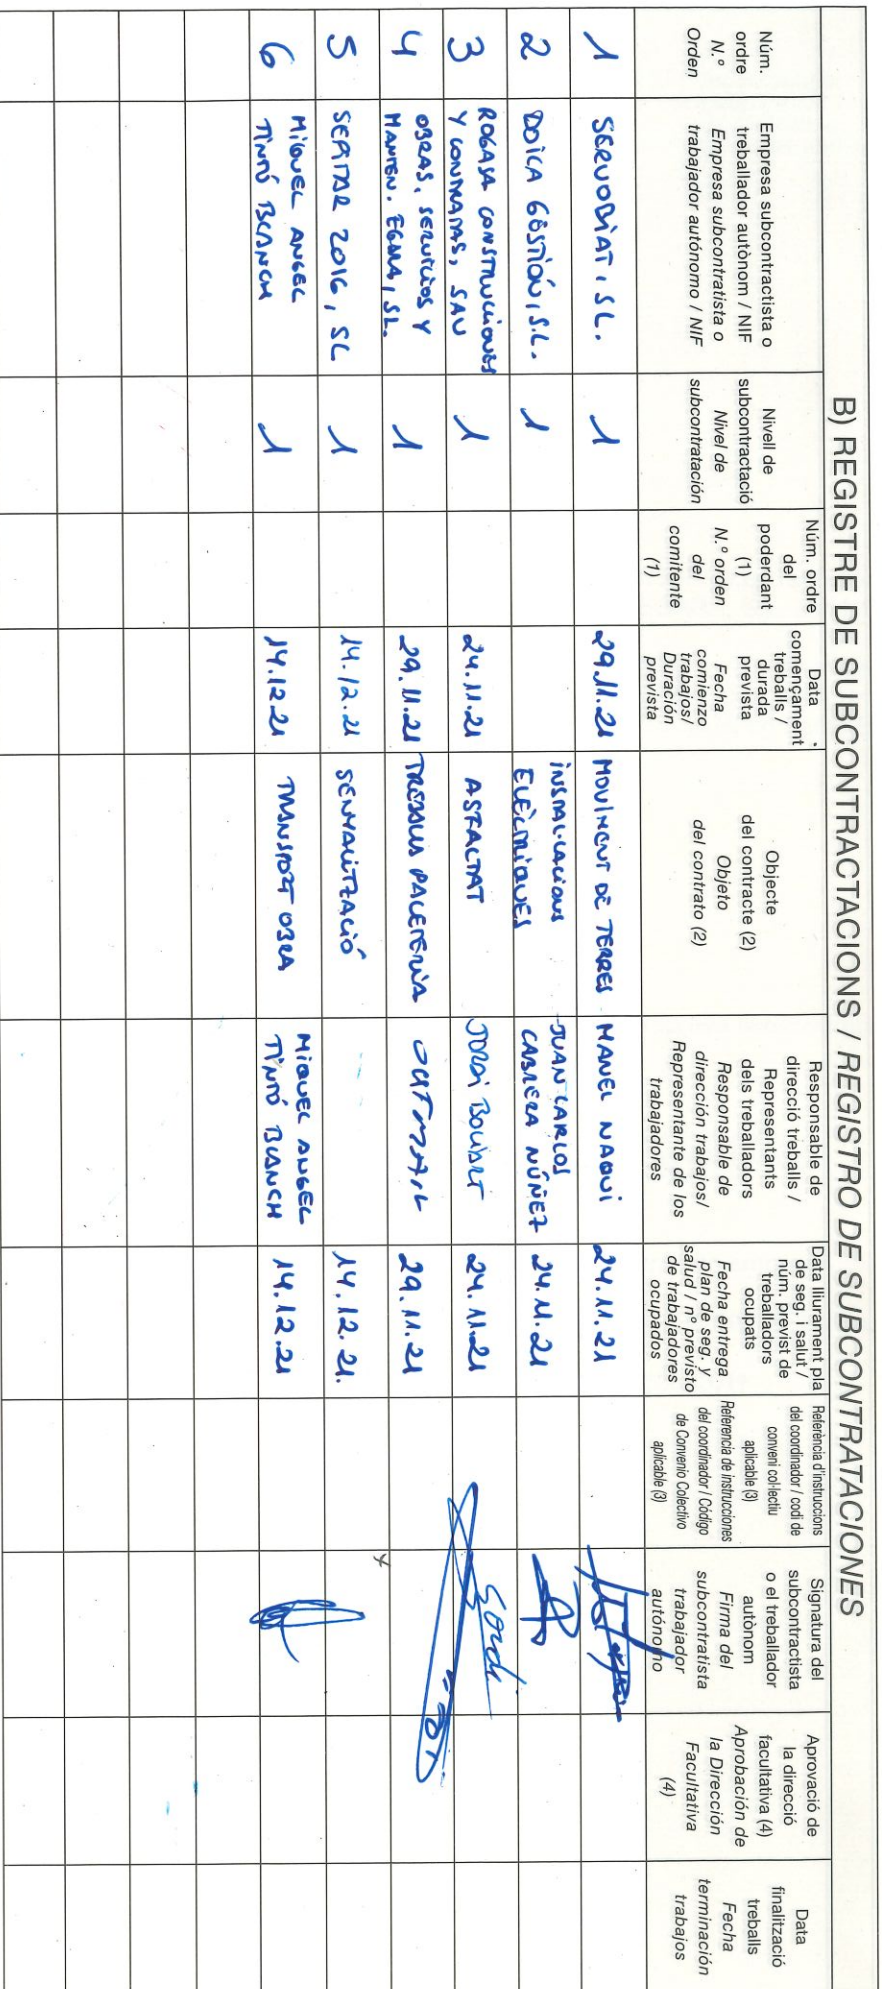 B) REGISTRE DE SUBCONTRACTACIONS / REGISTRO DE SUBCONTRATACIONES
Núm.
ordre
N.º
Orden
Empresa subcontractista o
treballador autònom / NIF
Empresa subcontratista o
trabajador autónomo / NIF
Nivell de
subcontractació
Nivel de
subcontratación
Núm. ordre
del
poderdant
(1)
N.º orden
del
comitente
(1)
Data
començament
treballs /
durada
prevista
Fecha
comienzo
trabajos/
Duración
prevista
Objecte
del contracte (2)
Objeto
del contrato (2)
Responsable de
direcció treballs /
Representants
dels treballadors
Responsable de
dirección trabajos/
Representante de los
trabajadores
Data lliurament pla
de seg. i salut /
núm. previst de
treballadors
ocupats
Fecha entrega
plan de seg. y
salud / nº previsto
de trabajadores
ocupados
Referència d'instruccions
del coordinador / codi de
conveni col·lectiu
aplicable (3)
Referencia de instrucciones
del coordinador / Código
de Convenio Colectivo
aplicable (3)
Signatura del
subcontractista
o el treballador
autònom
Firma del
subcontratista
trabajador
autónomo
Aprovació de
la direcció
facultativa (4)
Aprobación de
la Dirección
Facultativa
(4)
Data
finalització
treballs
Fecha
terminación
trabajos
1
SERVOBIAT, SL.
1
29.11.21
MOVIMENT DE TERRES
MANEL NAQUI
24.11.21
2
DOICA GESTIÓN, S.L.
1
INSTAL·LACIONS
ELÈCTRIQUES
JUAN CARLOS
CABRERA NÚÑEZ
24.11.21
3
ROGASA CONSTRUCCIONES
Y CONTRATAS, SAU
1
24.11.21
ASFALTAT
JORDI BOUBART
24.11.21
Jordi
4
OBRAS, SERVICIOS Y
MANTEN. EGARA, SL.
1
29.11.21
TREBALLS PALETERIA
29.11.21
5
SEPITAR 2016, SL
1
14.12.21
SENYALITZACIÓ
14.12.21.
x
6
MIQUEL ANGEL
TINTÓ BLANCH
1
14.12.21
TRANSPORT OBRA
MIQUEL ANGEL
TINTÓ BLANCH
14.12.21